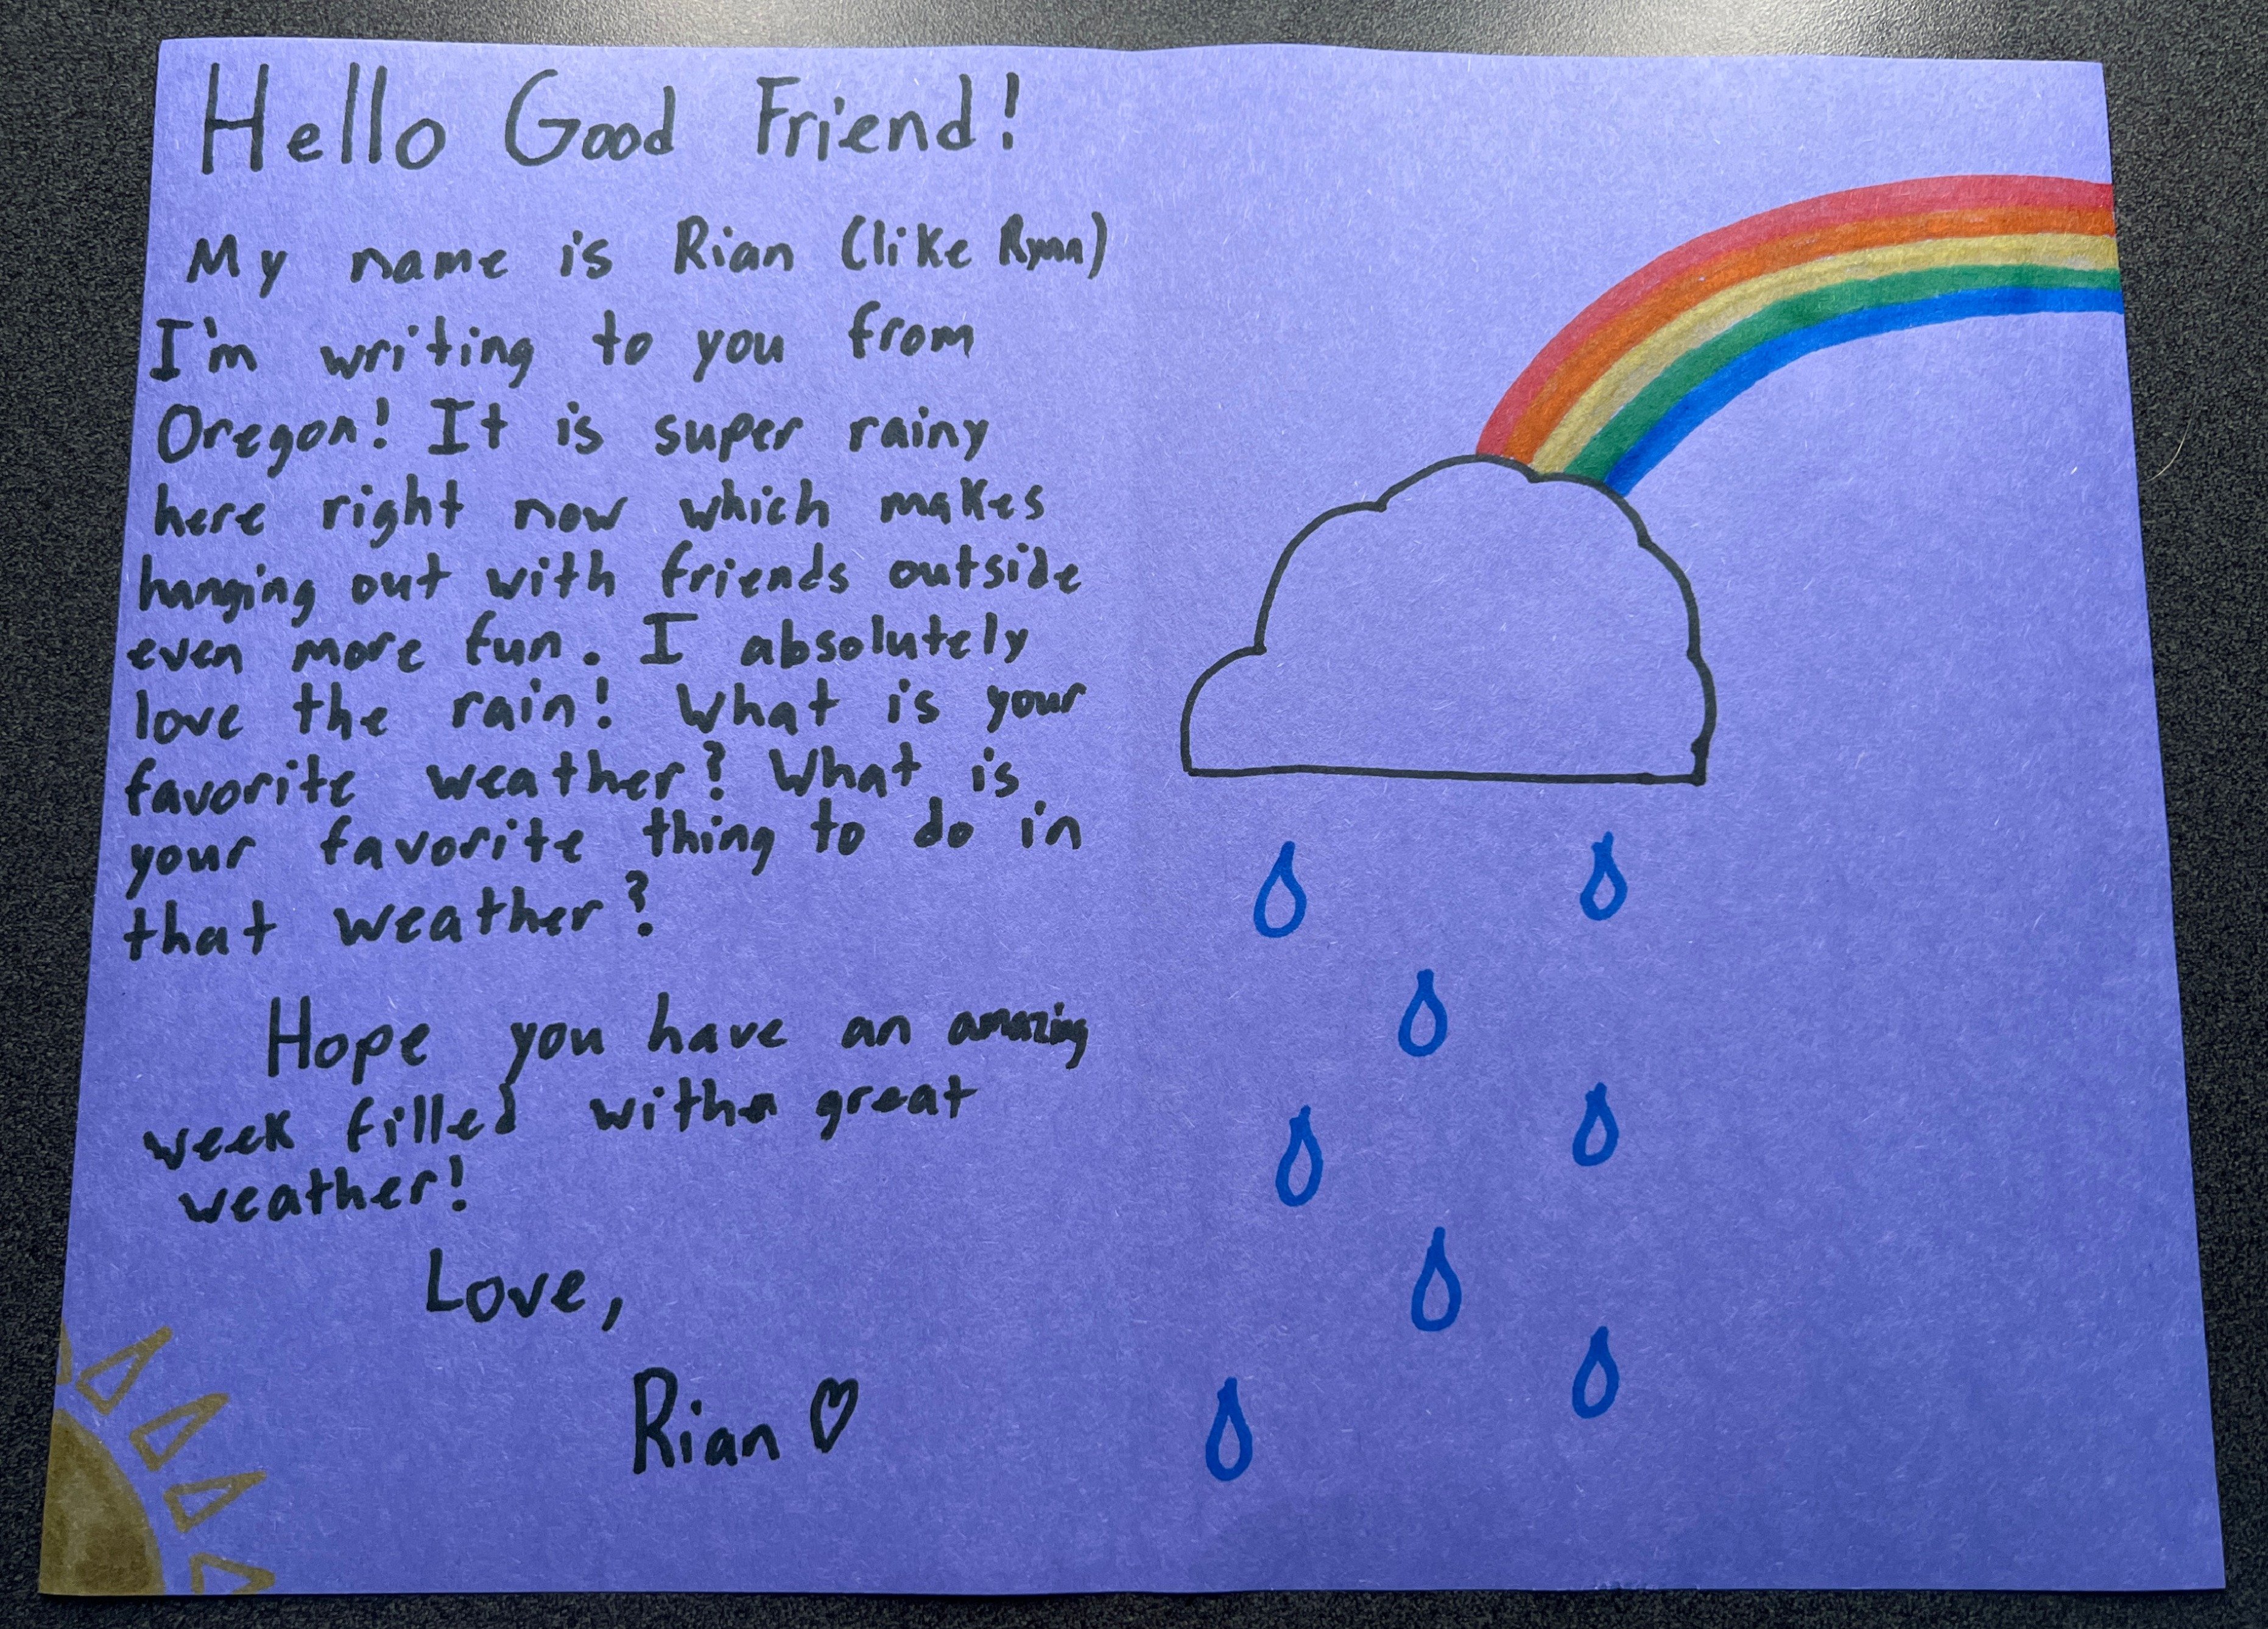 Hello Good Friend!
My name is Rian (like Ryan)
I'm writing to you from
Oregon! It is super rainy
here right now which makes
hanging out with friends outside
even more fun. I absolutely
love the rain! What is your
favorite weather? What is
your favorite thing to do in
that weather?
Hope you have an amazing
week filled with a great
weather!
Love,
Rian ♡